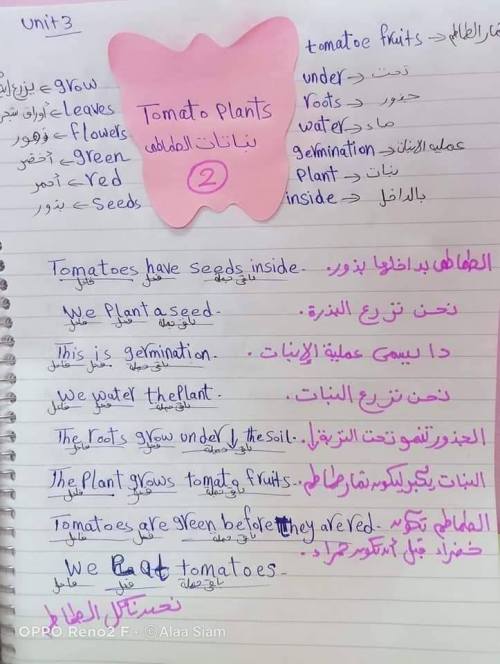 unit 3
tomatoe fruits → ثمار الطاطم
under → تحت
roots → جذور
water → ماء
germination → عملية الإنبات
Plant → نبات
inside → بالداخل
grow → يزرع
Leaves → أوراق شجر
flowers → زهور
green → أخضر
red → أحمر
Seeds → بذور
Tomato Plants
نباتات الطماطم
2
Tomatoes have seeds inside. الطماطم بداخلها بذور.
فاعل فعل باقي جملة
We Plant a seed. نحن نزرع البذرة.
فاعل فعل باقي جملة
This is germination. دا يسمى عملية الإنبات.
فاعل فعل باقي جملة
We water the Plant. نحن نزرع النبات.
فاعل فعل باقي جملة
The roots grow under ↓ the soil. الجذور تنمو تحت التربة.
فاعل فعل باقي جملة
The Plant grows tomato fruits. النبات يكبر ليكون ثمار طماطم.
فاعل فعل باقي جملة
Tomatoes are green before they are red. الطماطم تكون
فاعل فعل باقي جملة
خضراء قبل أن تكون حمراء.
We Eat tomatoes.
فاعل فعل باقي جملة
نحن نأكل الطماطم
OPPO Reno2 F · © Alaa Siam